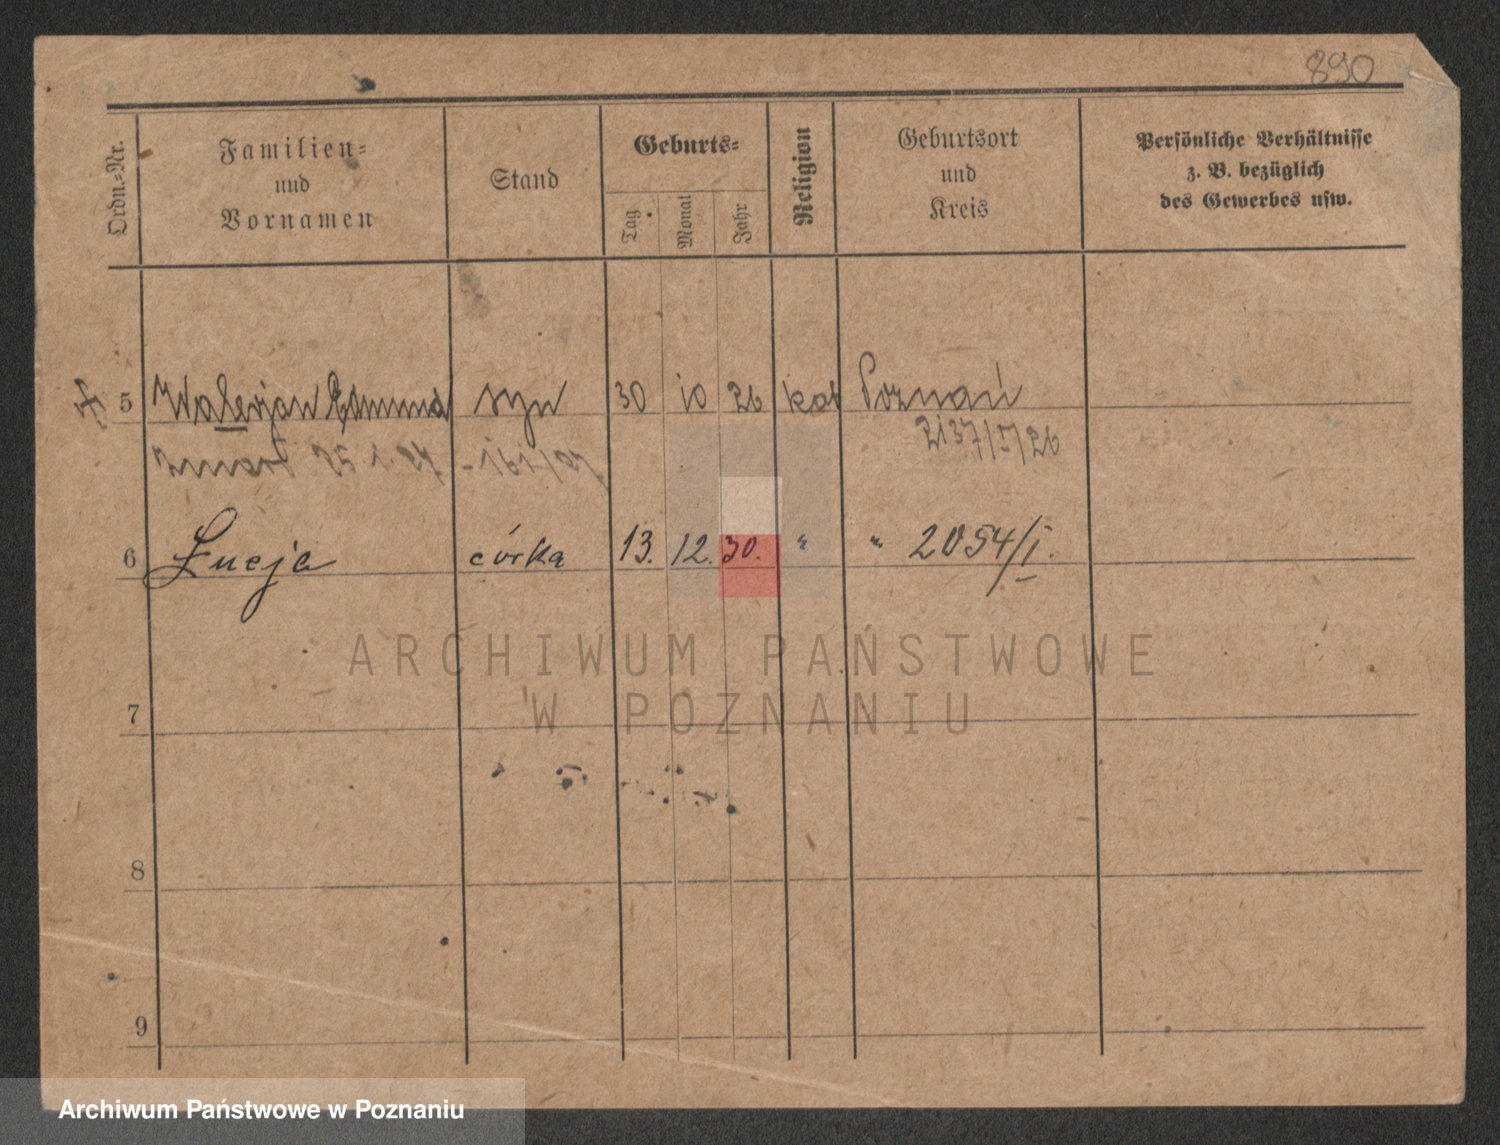 890
Ordn.=Nr.
Familien=
und
Vornamen
Stand
Geburts=
Tag
Monat
Jahr
Religion
Geburtsort
und
Kreis
Persönliche Verhältnisse
z. B. bezüglich
des Gewerbes usw.
5 Walerjan Edmund syn 30 10 26 kat Poznań
2137/I/26
zmarł 25 1. 27 - 161/27
6 Łucja córka 13. 12. 30. " " 2054/I.
ARCHIWUM PAŃSTWOWE
W POZNANIU
7
8
9
Archiwum Państwowe w Poznaniu